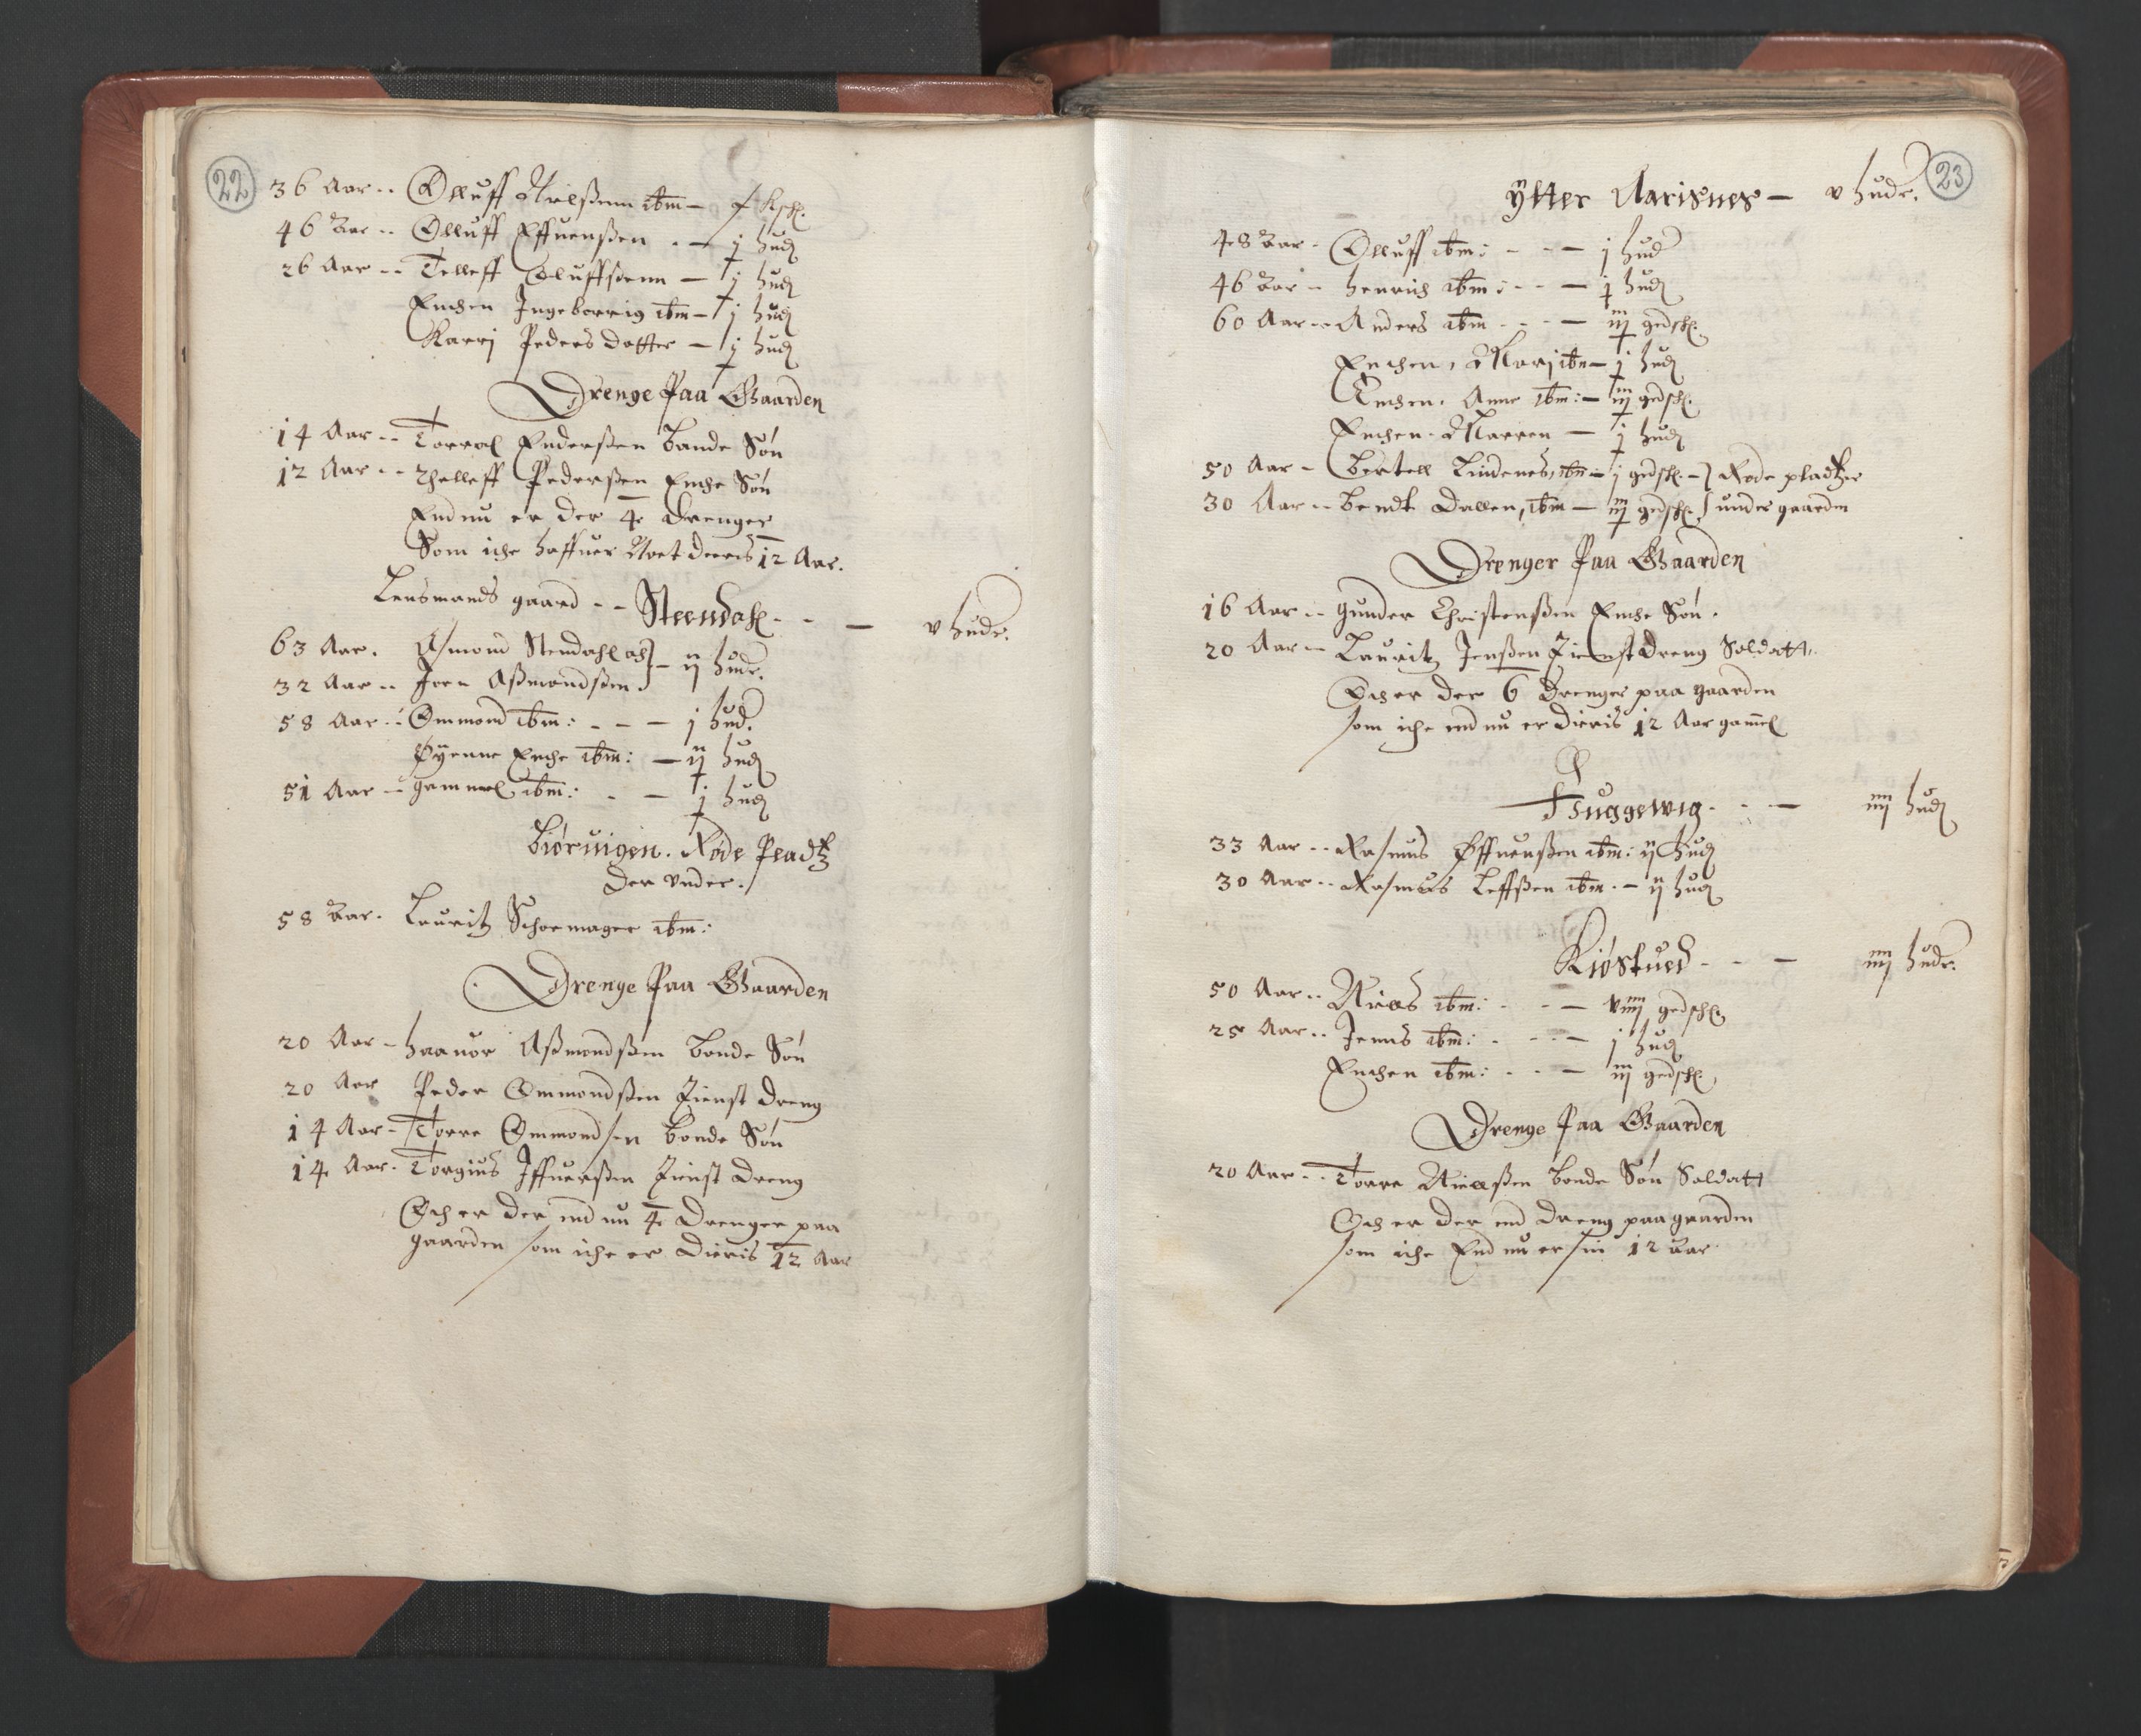 22
36 Aar -- Olluff Nielßenn ibm -
46 Aar -- Olluff Effuenßen - - j hud
26 Aar -- Telleff Oluffßenn - j hud
Enchen Ingeborrig ibm - j hud
Karrj Peders dotter - j hud
Drenge Paa Gaarden
14 Aar -- Torrel Enderßen Bonde Søn
12 Aar -- Thelleff Pederßen Enche Søn
End nu er der 4 Drenger
Som iche haffuer Noet dieris 12 Aar.
Lensmands gaard - - Steendahl - - - v huder.
63 Aar. Aßmond Stendahl och
32 Aar -- Joen Aßmondßen - ij huder.
58 Aar -- Ommond ibm: - - - j hud.
Øyenne Enche ibm: - ij hud
51 Aar -- gammel ibm: - - j hud
Biøruigen. Røde Pladtz
der vnder.
58 Aar. Lauritz Schoemager ibm:
Drenge Paa Gaarden
20 Aar - haauor Aßmondßen Bonde Søn
20 Aar Peder Ommondßen Tienst dreng
14 Aar - Torre Ommondsen Bonde Søn
14 Aar. Torgius Iffuerßen Tienst dreng
Och er der end nu 4 Drenger paa
gaarden som iche er dieris 12 Aar
23
Ytter Aarisnes - v huder.
48 Aar - Olluff ibm: - - - j hud
46 Aar -- henrich ibm: - - - j hud
60 Aar -- Anders ibm - - - iij gedsch.
Enchen, Marj ibm - j hud
Enchen. Anne ibm: - iij gedsch.
Enchen. Marren - j hud
50 Aar - Bertell Lindenes, ibm - j gedsch. - Røde pladtzer
30 Aar -- Bendt Dallen, ibm - iij gedsch. under gaarden
Drenger Paa Gaarden
16 Aar -- gunder Christenßen Enche Søn.
20 Aar -- Lauritz Jenßen Tienst Dreng Soldatt.
Och er der 6 Drenger paa gaarden
som iche end nu er dieris 12 Aar gamel
Fuggewig - - - iiij hud
33 Aar -- Rasmus Øffuenßen ibm: ij hud
30 Aar -- Rasmus Leffßen ibm. - ij hud
Kiøstued - - - iiij huder.
50 Aar -- Niels ibm: - - - viiij gedsch.
25 Aar -- Jenns ibm: - - - j hud
Enchen ibm: - - - iij gedsch.
Drenge Paa Gaarden
20 Aar -- Torre Nielßen Bonde Søn Soldatt
Och er der end Dreng paa gaarden
som iche End nu er sin 12 Aar